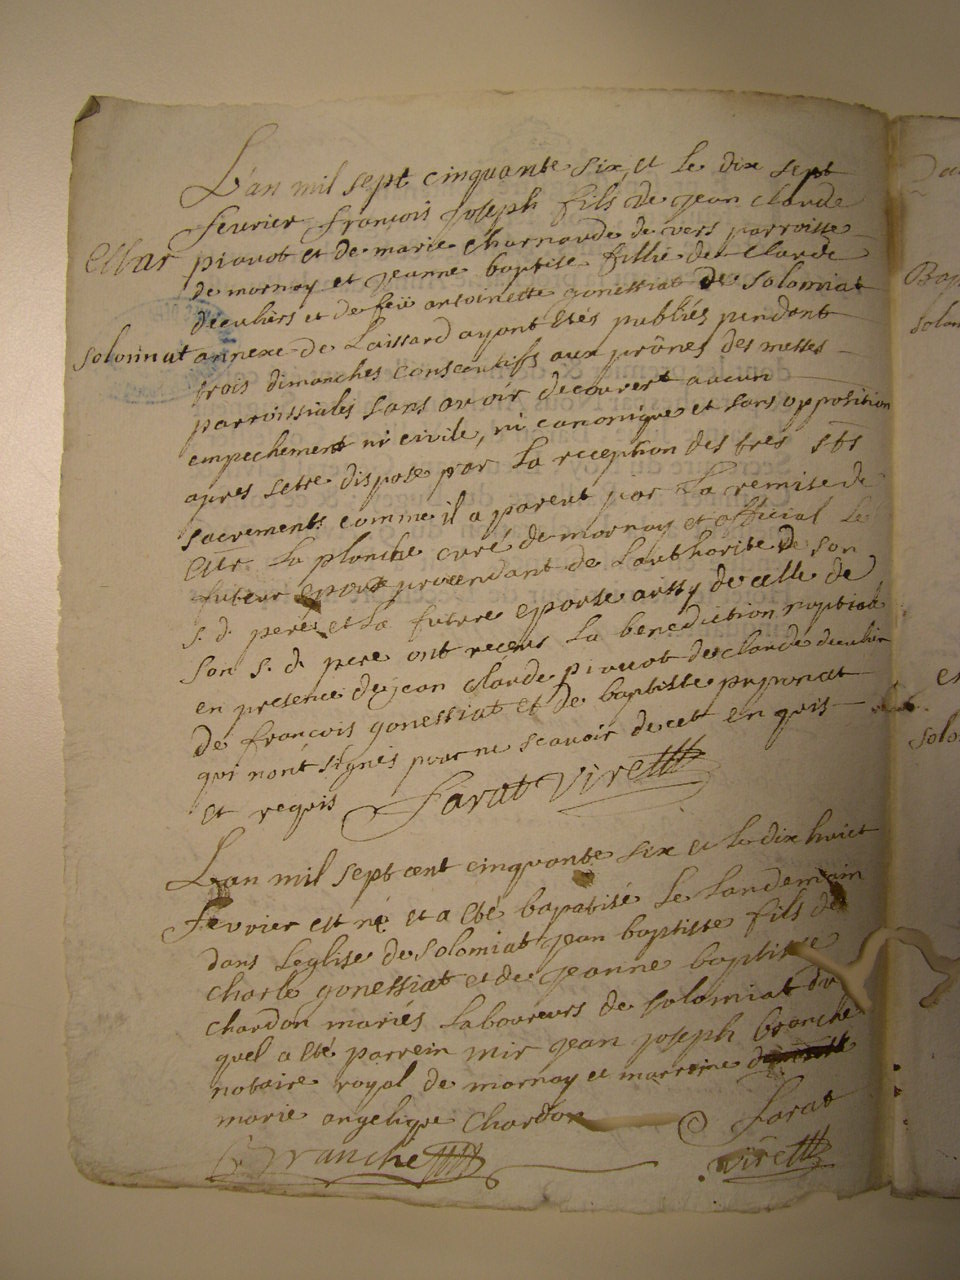 L'an mil sept cinquante six et le dix sept
fevrier françois joseph fils de jean claude
piavot et de marie charnaude de vers parroisse
de mornay et jeanne baptise fillie de claude
decuhers et de feüe antoinette gonessiat de solomiat
solomiat annexe de Laissard ayant étés publiés pendant
trois dimanches consecutifs aux prônes des messes
parroissiales sans avoir decouvert aucun
empechement ni civile, ni canonique et sans opposition
apres setre dispose par la reception des tres sts
sacrements comme il a parent par la remise de
la planche curé de mornay et official le
futeur epoux procendant de lauthorite de son
s. d. pere et la future epouse aussy de celle de
son s. d. pere ont receus la benediction nuptiale
en presence de jean claude piavot de claude decuhier
de françois gonessiat et de baptiste
qui nont signés pour ne scavoir de cet enquis
et requis farat viret
L'an mil sept cent cinquante six et le dix huict
fevrier est né et a eté bapatisé le landemain
dans leglise de solomiat jean baptiste fils de
charle gonessiat et de jeanne baptiste
chardon mariés laboureurs de solomiat du
quel a eté parrein mir jean joseph branche
notaire royal de mornay et marreine
marie angelique chardon farat
Branche viret